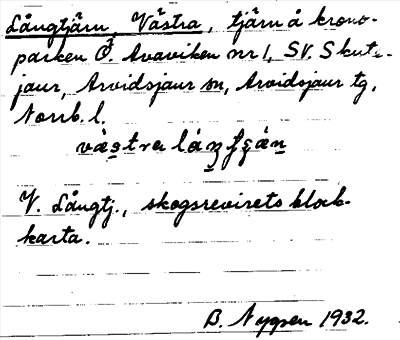 Långtjärn, Västra, tjärn å krono-
parken Ö. Avaviken nr 1, SV. Skut-
jaur, Arvidsjaur sn, Arvidsjaur tg,
Norrb. l.
V. Långtj., skogsrevirets block-
karta.
B. Nygren 1932.